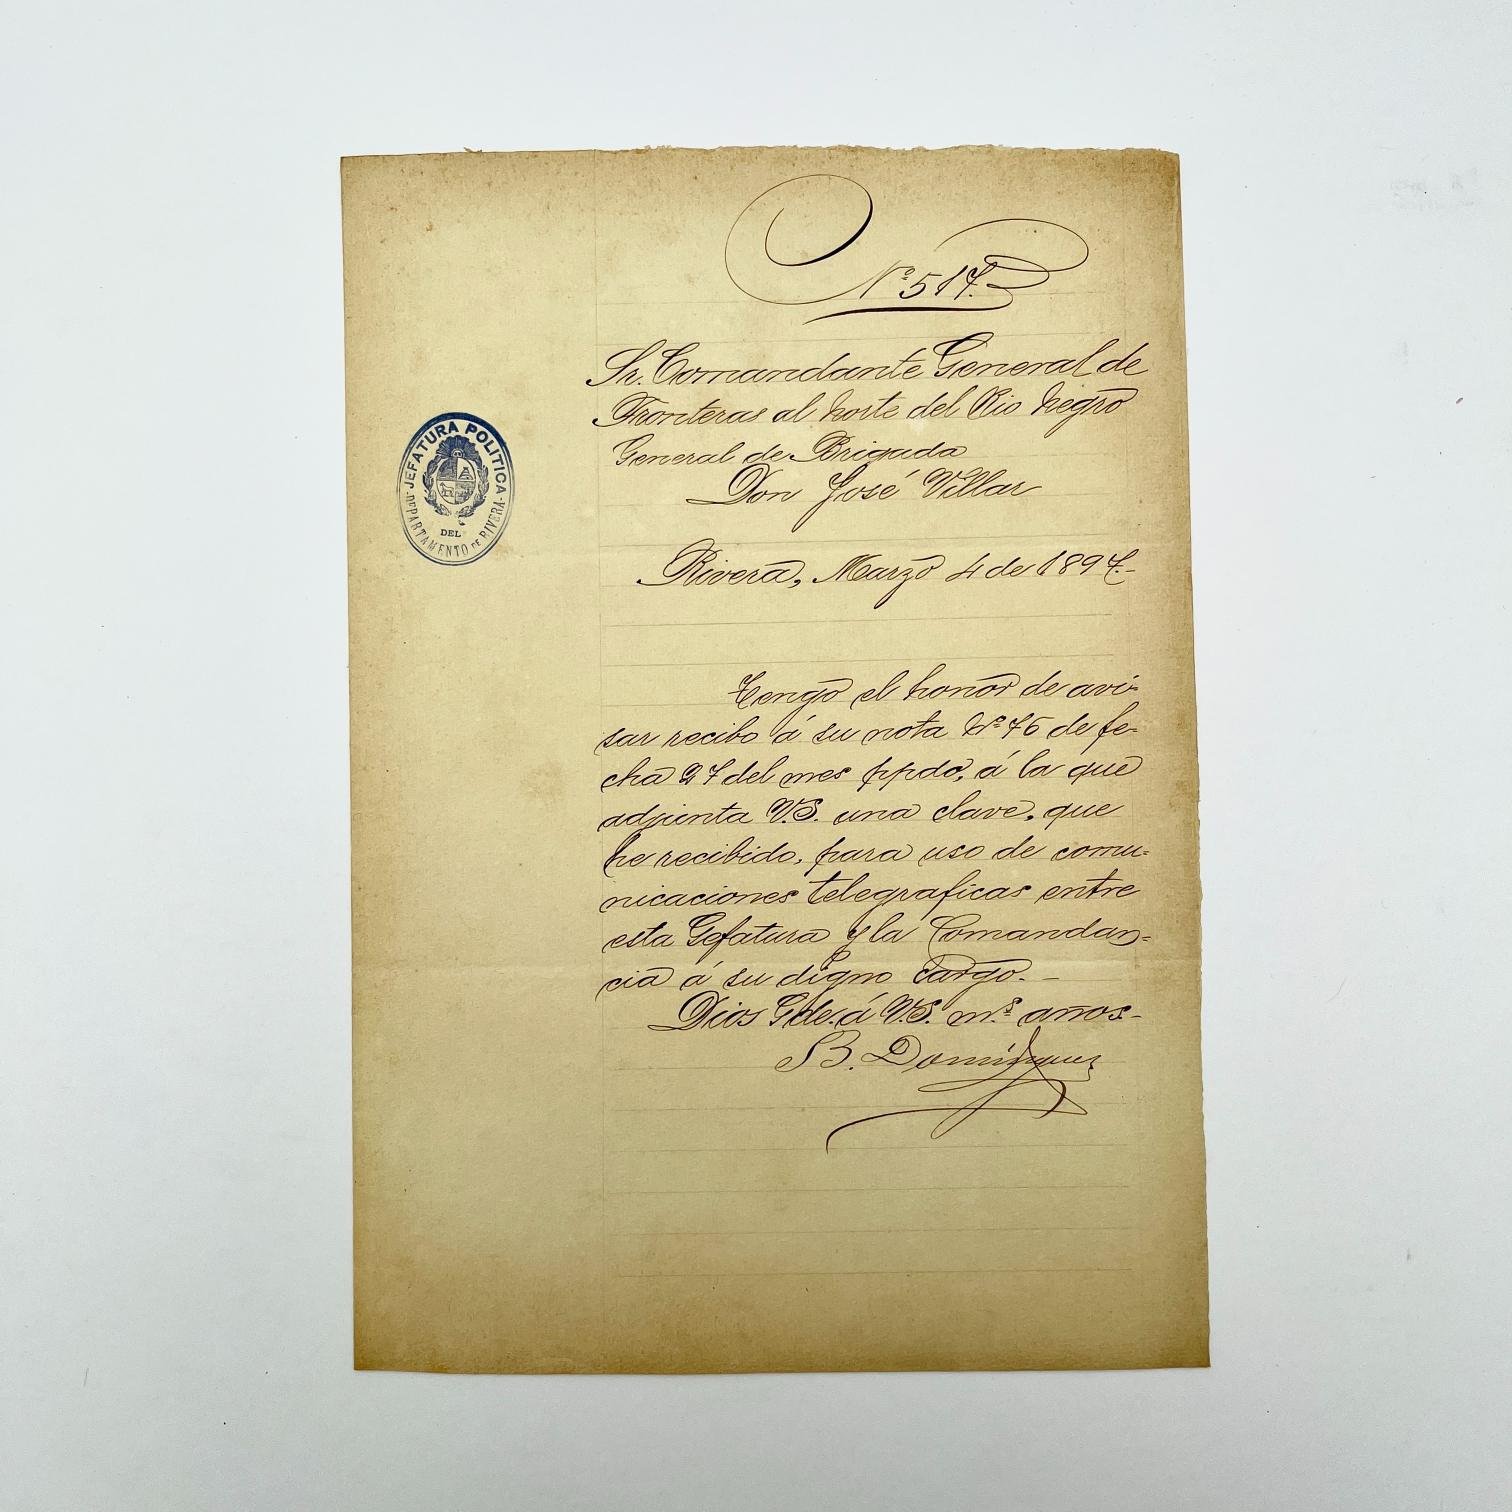 Nº 517.
JEFATURA POLITICA
DEL
DEPARTAMENTO DE RIVERA
Sr. Comandante General de
Fronteras al norte del Rio Negro
General de Brigada
Don José Villar
Rivera, Marzo 4 de 1897.-
Tengo el honor de avi-
sar recibo á su nota Nº 76 de fe-
cha 27 del mes ppdo, á la que
adjunta V.S. una clave, que
he recibido, para uso de comu-
nicaciones telegraficas entre
esta Gefatura y la Comandan-
cia á su digno cargo.-
Dios Gde. á V.S. m.s años-
B. Domínguez